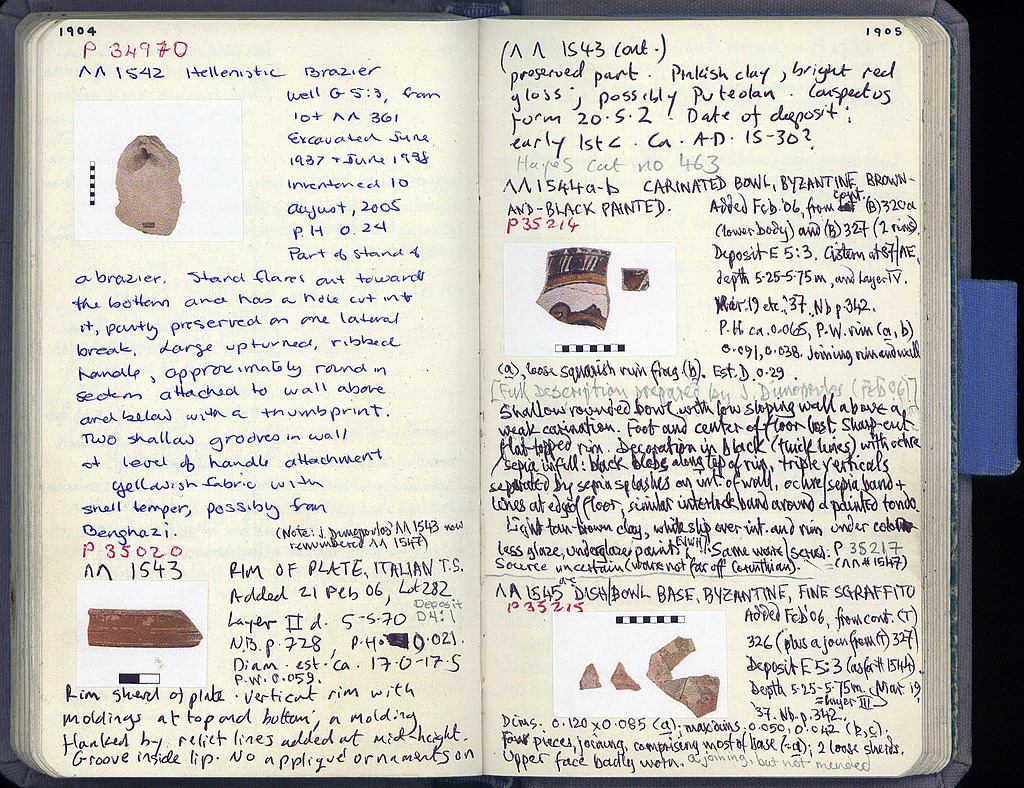 1904
P 34970
ΛΛ 1542 Hellenistic Brazier
Well G 5:3, from
lot ΛΛ 361
Excavated June
1937 + June 1938
Inventoried 10
august, 2005
P.H 0.24
Part of stand of
a brazier. Stand flares out toward
the bottom and has a hole cut into
it, partly preserved on one lateral
break. Large upturned, ribbed
handle, approximately round in
section attached to wall above
and below with a thumbprint.
Two shallow grooves in wall
at level of handle attachment
Yellowish fabric with
shell temper, possibly from
Benghazi.
(Note: J. Dimopoulos' ΛΛ 1543 now
renumbered ΛΛ 1547)
P 35020
ΛΛ 1543
RIM OF PLATE, ITALIAN T.S.
Added 21 Feb 06, Lot 282
Layer II d. 5-5.70
Deposit
D4:1
N.B. p. 728, P.H. 0.021.
Diam. est. ca. 17.0-17.5
P.W. 0.059.
Rim sherd of plate. vertical rim with
moldings at top and bottom, a molding
flanked by relief lines added at mid-height.
Groove inside lip. No appliqué ornaments on
1905
(ΛΛ 1543 cont.)
preserved part. Pinkish clay, bright red
gloss, possibly Puteolan. Conspectus
form 20.5.2. Date of deposit:
early 1st c. Ca. A.D. 15-30?
Hayes cat no 463
ΛΛ 1544 a-b CARINATED BOWL, BYZANTINE BROWN-
AND-BLACK PAINTED.
P 35214
Added Feb. '06, from cont. (B) 320a
(lower body) and (B) 327 (2 rims).
Deposit E 5:3. Cistern at 87/ΛE,
depth 5.25-5.75m, and Layer IV.
Mar. 19 etc. '37. Nb p. 342.
P.H. ca. 0.065, P.W. rim (a, b)
0.091, 0.038. joining rim and wall
(a), loose squarish rim frag (b). Est. D. 0.29.
[Full Description prepared by J. Dimopoulos (Feb 06)]
Shallow rounded bowl with low sloping wall above a
weak carination. Foot and center of floor lost. Sharp-cut
flat-topped rim. Decoration in black (thick lines) with ochre
/sepia infill: black blobs along top of rim, triple verticals
separated by sepia splashes on int. of wall, ochre/sepia band +
lines at edge of floor, similar interlock band around a painted tondo.
Light tan-brown clay, white slip over int. and rim under color-
less glaze, underglaze paint. Same ware (series): P 35217
Source uncertain (ware not far off Corinthian). = (ΛΛ# 1547)
ΛΛ 1545 a-c DISH/BOWL BASE, BYZANTINE, FINE SGRAFFITO
P 35215
Added Feb. '06, from cont. (T)
326 (plus a join from (T) 327)
Deposit E 5:3 (as for # 1544).
Depth 5.25-5.75m. (Mar 19,
= layer III)
'37. Nb. p. 342.
Dims. 0.120 x 0.085 (a); max dims. 0.050, 0.042 (b, c).
Four pieces, joining, comprising most of base (a); 2 loose sherds.
Upper face badly worn. a joining, but not mended